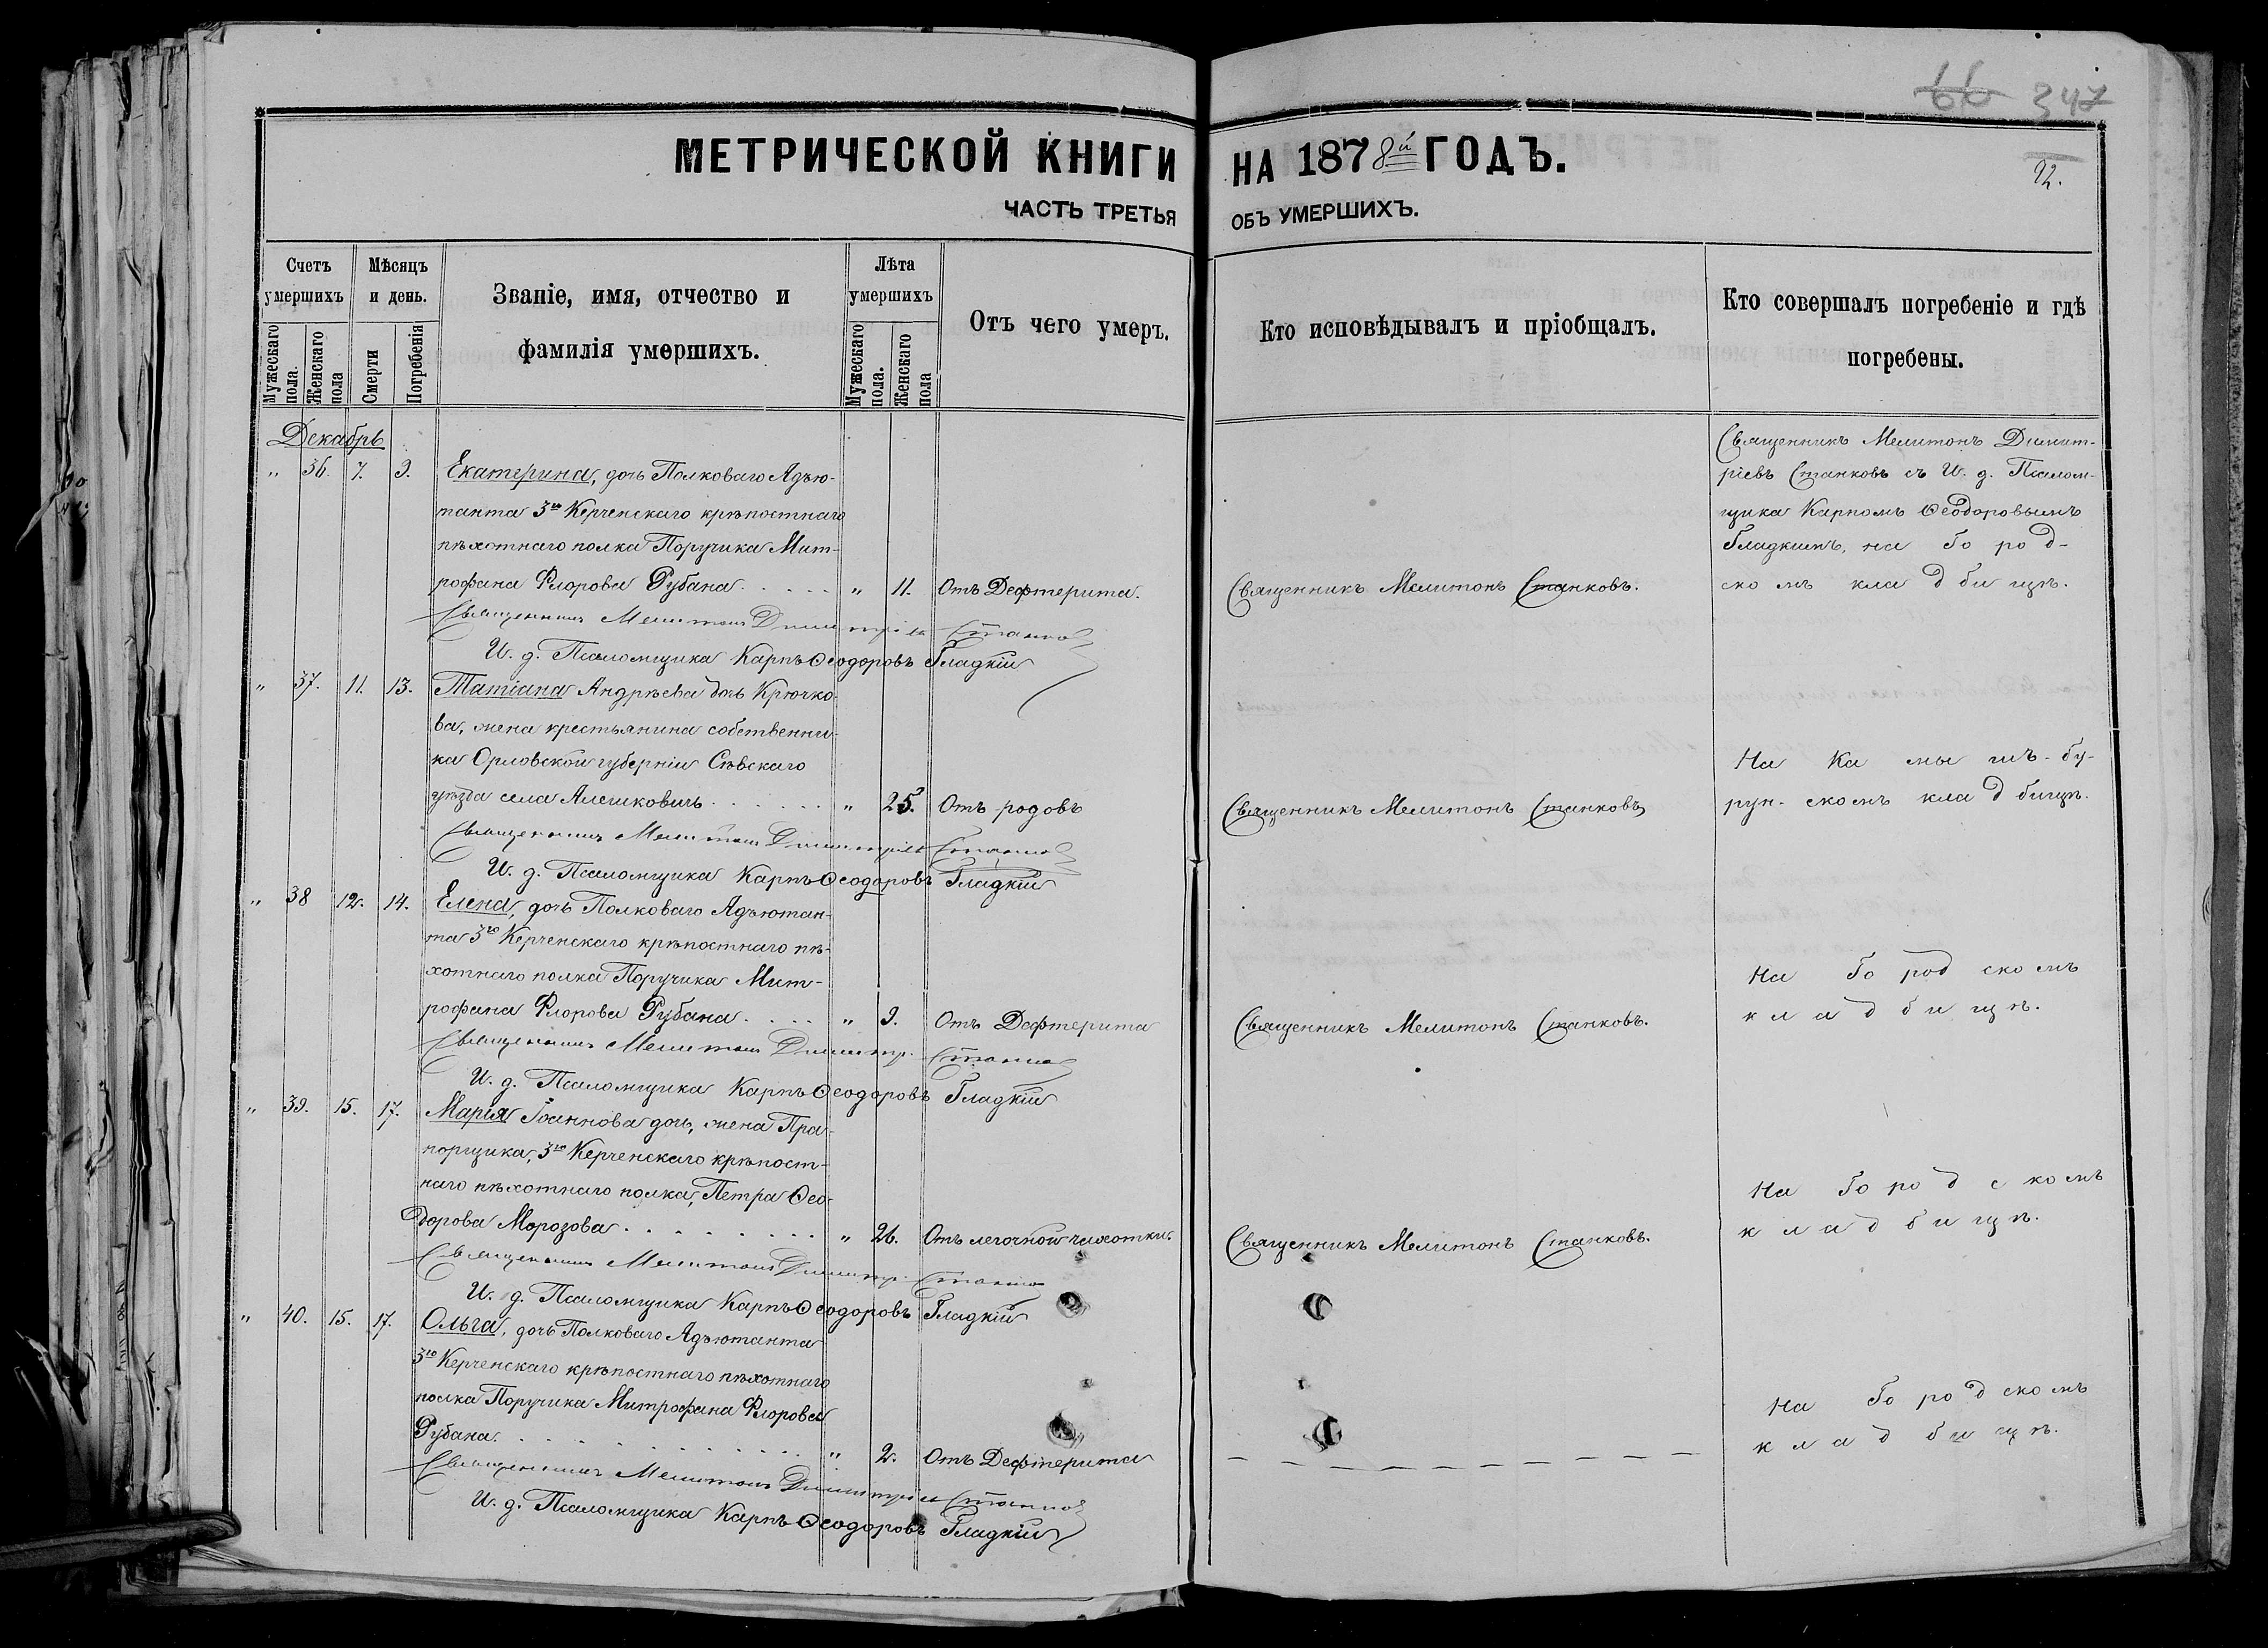 66 347
МЕТРИЧЕСКОЙ КНИГИ НА 1878й ГОДЪ.
92.
ЧАСТЬ ТРЕТЬЯ ОБЪ УМЕРШИХЪ.
Счетъ умершихъ
Мужескаго пола.
Женскаго пола
Мѣсяцъ и день.
Смерти
Погребенія
Званіе, имя, отчество и
фамилія умершихъ.
Лѣта умершихъ
Мужескаго пола.
Женскаго пола
Отъ чего умеръ.
Кто исповѣдывалъ и пріобщалъ.
Кто совершалъ погребеніе и гдѣ
погребены.
Декабрь
„ 36. 7. 9. Екатерина, дочь Полковаго Адъю-
танта 3го Керченскаго крѣпостнаго
пѣхотнаго полка Поручика Мит-
рофана Флорова Рубана. . . . . „ 11. Отъ Дефтерита.
Священникъ Мелитонъ Станковъ.
Священникъ Мелитонъ Димит-
ріевъ Станковъ съ И. д. Псалом-
щика Карпомъ Ѳеодоровымъ
Гладкимъ, на Город-
скомъ кладбищѣ.
Священникъ Мелитонъ Димитріев Станков
И. д. Псаломщика Карпъ Ѳеодоровъ Гладкій
„ 37. 11. 13. Татіана Андрѣева дочь Крючко-
ва, жена крестьянина собственни-
ка Орловской губерніи Сѣвскаго
уѣзда села Алешковичь . . . . . . „ 25. Отъ родовъ
Священникъ Мелитонъ Станковъ
На Камышъ-бу-
рун-скомъ кладбищѣ.
Священникъ Мелитонъ Димитріев Станков
И. д. Псаломщика Карпъ Ѳеодоровъ Гладкій
„ 38 12. 14. Елена, дочь Полковаго Адъютан-
та 3го Керченскаго крѣпостнаго пѣ-
хотнаго полка Поручика Мит-
рофана Флорова Рубана. . . . . „ 9. Отъ Дефтерита
Священникъ Мелитонъ Станковъ.
На Городскомъ
кладбищѣ.
Священникъ Мелитонъ Димитр. Станков
И. д. Псаломщика Карпъ Ѳеодоровъ Гладкій
„ 39. 15. 17. Марія Іоаннова дочь, жена Пра-
порщика, 3го Керченскаго крѣпост-
наго пѣхотнаго полка, Петра Ѳео-
дорова Морозова . . . . . . . . „ 26. Отъ легочной чахотки.
Священникъ Мелитонъ Станковъ.
На Городскомъ
кладбищѣ.
Священникъ Мелитонъ Димитр. Станков
И. д. Псаломщика Карпъ Ѳеодоровъ Гладкій
„ 40. 15. 17. Ольга, дочь Полковаго Адъютанта
3го Керченскаго крѣпостнаго пѣхотнаго
полка Поручика Митрофана Флорова
Рубана. . . . . . . . . . . . „ 2. Отъ Дефтерита
На Городскомъ
кладбищѣ.
Священникъ Мелитонъ Димитріев Станков
И. д. Псаломщика Карпъ Ѳеодоровъ Гладкій